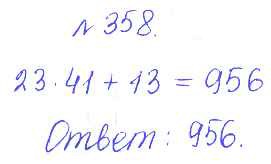 № 358.
23·41 + 13 = 956
Ответ: 956.